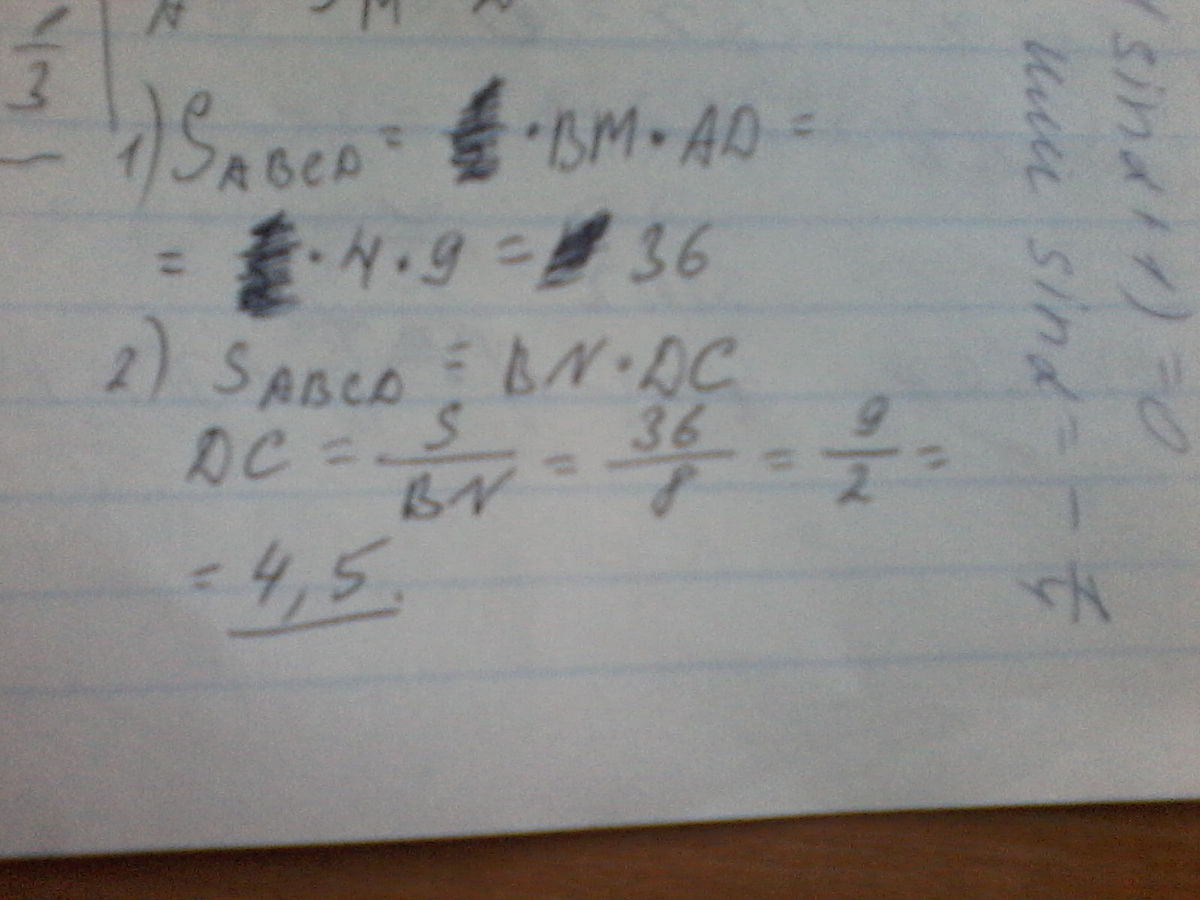 A M
1/3
1) S ABCD = · BM · AD =
= · 4 · 9 = 36
2) S ABCD = BN · DC
DC = S/BN = 36/8 = 9/2 =
= 4,5.
sin x + 1) = 0
или sin x = -